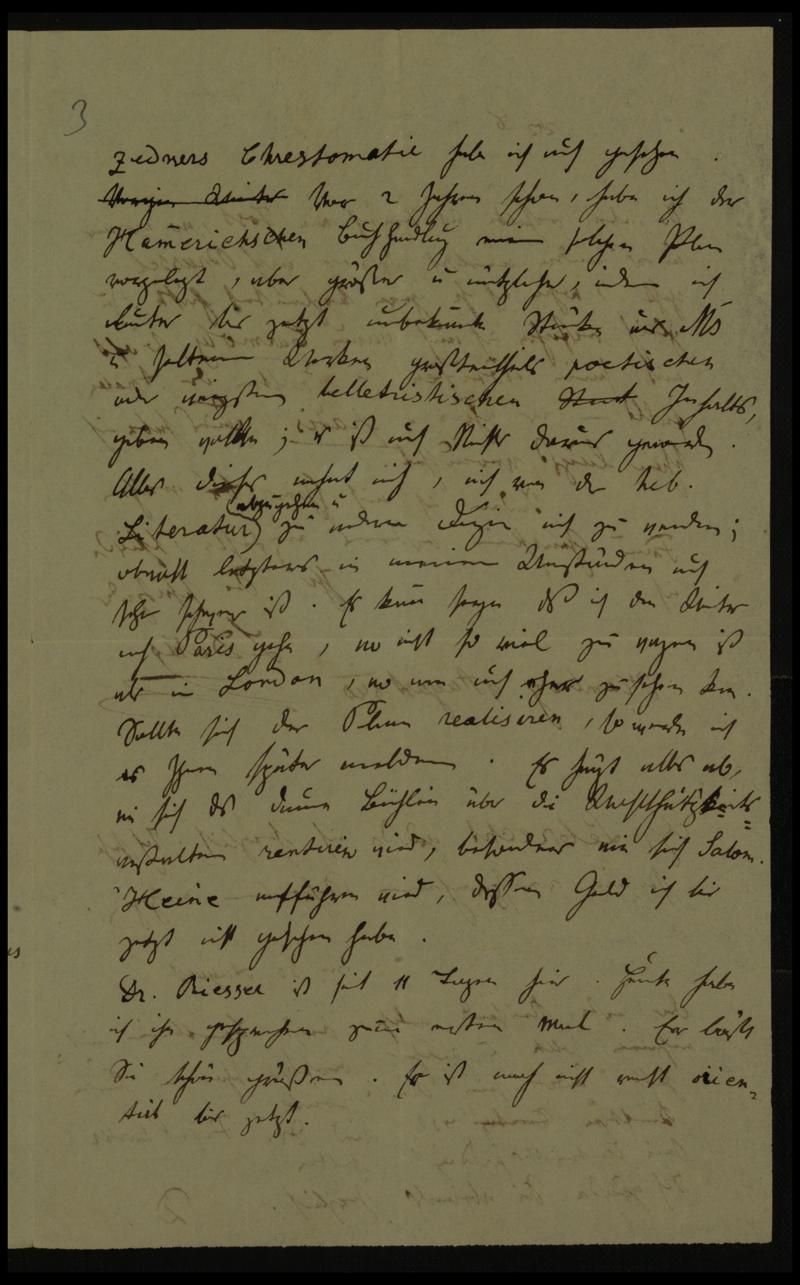 3
Zedners Chrestomatie habe ich auch gesehen.
Vorigen Winter Vor 2 Jahren schon, habe ich der
Hamerichschen Buchhandlung einen solchen Plan
vorgelegt, aber größer u nützlicher, indem ich
lauter bis jetzt unbekannte Stücke aus Ms
u seltenen Werken größtentheils poetischen
oder wenigstens belletristischen Inhalts,
geben wollte; es ist auch Nichts daraus geworden.
Alles dieses mahnt mich, mich von der heb.
Literatur (abzugehen u zu andern mich zu wenden;
obwohl letzteres in meinen Umständen auch
sehr schwer ist. Es kann seyn daß ich den Winter
nach Paris gehe, wo nicht so viel zu wagen ist
als in London, wo man auch eher zusehen kan.
Sollte sich der Plan realisiren, so werde ich
es Ihnen später melden. Es hängt alles ab,
wie sich das Büchlein über die Wohlthätigkeits
anstalten rentiren wird, besonders wie sich Salom.
Heine aufführen wird, dessen Geld ich bis
jetzt nicht gesehen habe.
Dr. Riesser ist seit 11 Tagen hier. Heute habe
ich ihn gesprochen zum ersten Mal. Er läßt
Sie schön grüßen. Er ist noch nicht recht orien=
tirt bis jetzt.